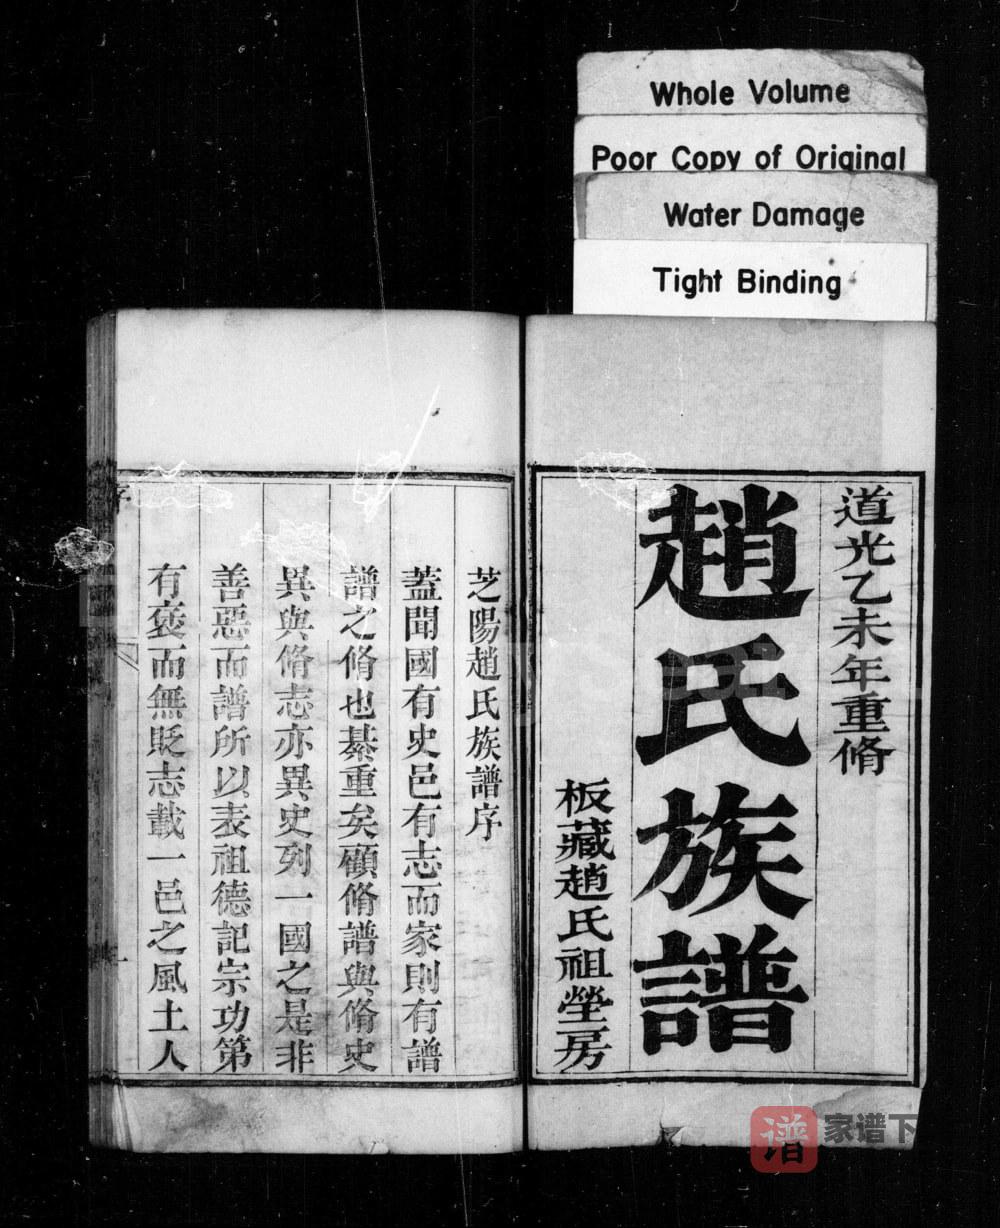 Whole Volume
Poor Copy of Original
Water Damage
Tight Binding
道光乙未年重脩
趙氏族譜
板藏趙氏祖塋房
芝陽趙氏族譜序
蓋聞國有史邑有志而家則有譜
譜之脩也綦重矣顧脩譜與脩史
異與脩志亦異史列一國之是非
善惡而譜所以表祖德記宗功第
有褒而無貶志載一邑之風土人
序
一
谱
家谱下